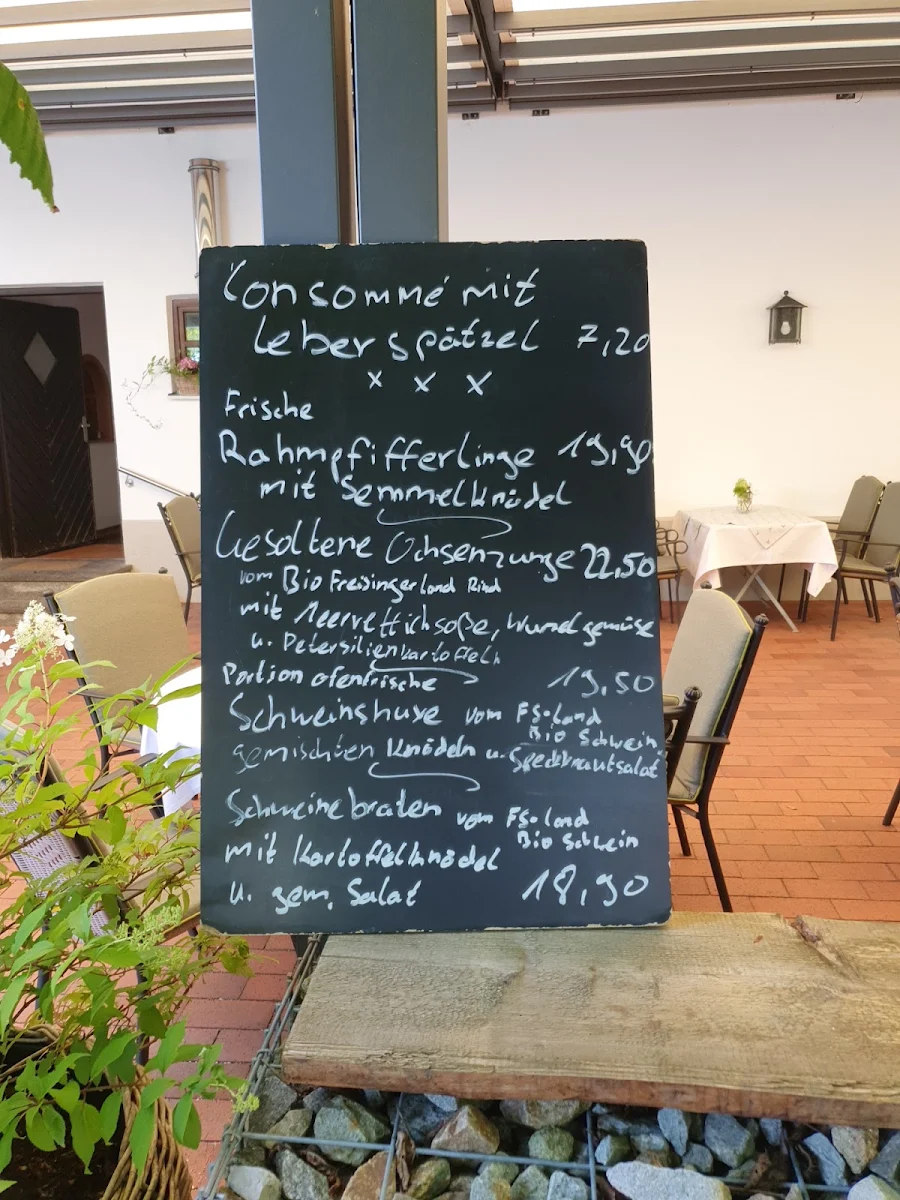 Consommé mit
Leberspätzel 7,20
x x x
Frische
Rahmpfifferlinge 19,90
mit Semmelknödel
Gesoltene Ochsenzunge 22,50
vom Bio Freisingerland Rind
mit Meerrettichsoße, Wurzelgemüse
u. Petersilienkartoffeln
Portion ofenfrische 19,50
Schweinshaxe vom FS-land
Bio Schwein,
gemischten Knödeln u. Speckkrautsalat
Schweinebraten vom FS-land
Bio Schwein
mit Kartoffelknödel
u. gem. Salat 18,90